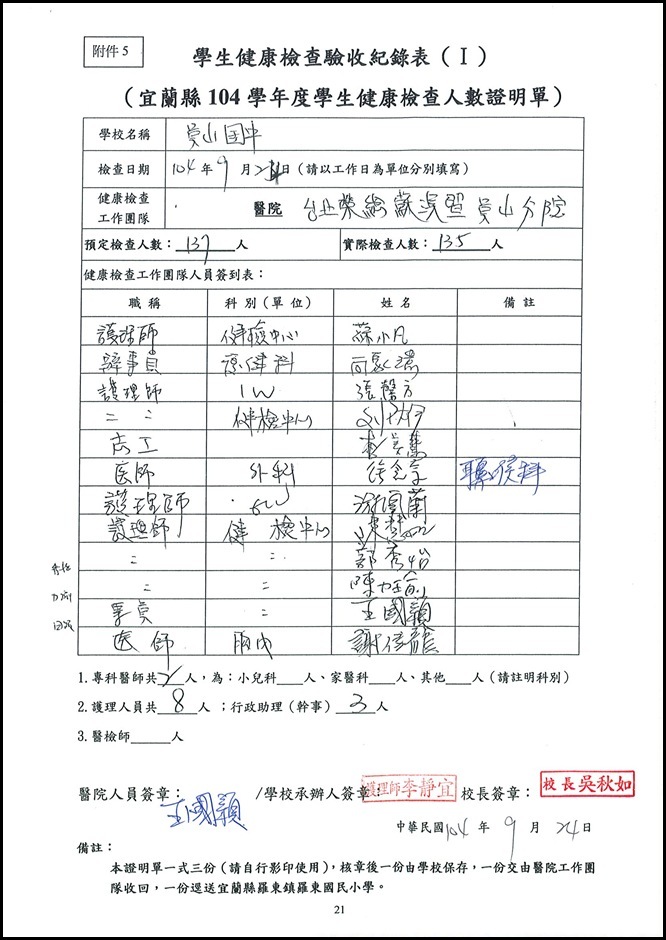 附件 5
學生健康檢查驗收紀錄表（I）
（宜蘭縣 104 學年度學生健康檢查人數證明單）
學校名稱 員山國中
檢查日期 104 年 9 月 日（請以工作日為單位分別填寫）
健康檢查工作團隊 醫院 員山分院
預定檢查人數：137人 實際檢查人數：135人
健康檢查工作團隊人員簽到表：
職稱 科別（單位） 姓名 備註
護理師 健檢中心 蘇小凡
辦事員 保健科
護理師 1W 張馨方
〃 〃 健檢中心
志工
医師 外科
護理師
護理師 健檢中心
〃 〃 部秀怡
〃 〃
〃 王國穎
医師 胸內 謝佳龍
1.專科醫師共2人，為：小兒科___人、家醫科___人、其他___人（請註明科別）
2.護理人員共 8 人；行政助理（幹事） 3 人
3.醫檢師______人
醫院人員簽章：王國穎 /學校承辦人簽章：護理師李靜宜 校長簽章：校長吳秋如
中華民國104 年 9 月 24日
備註：
本證明單一式三份（請自行影印使用），核章後一份由學校保存，一份交由醫院工作團
隊收回，一份逕送宜蘭縣羅東鎮羅東國民小學。
21